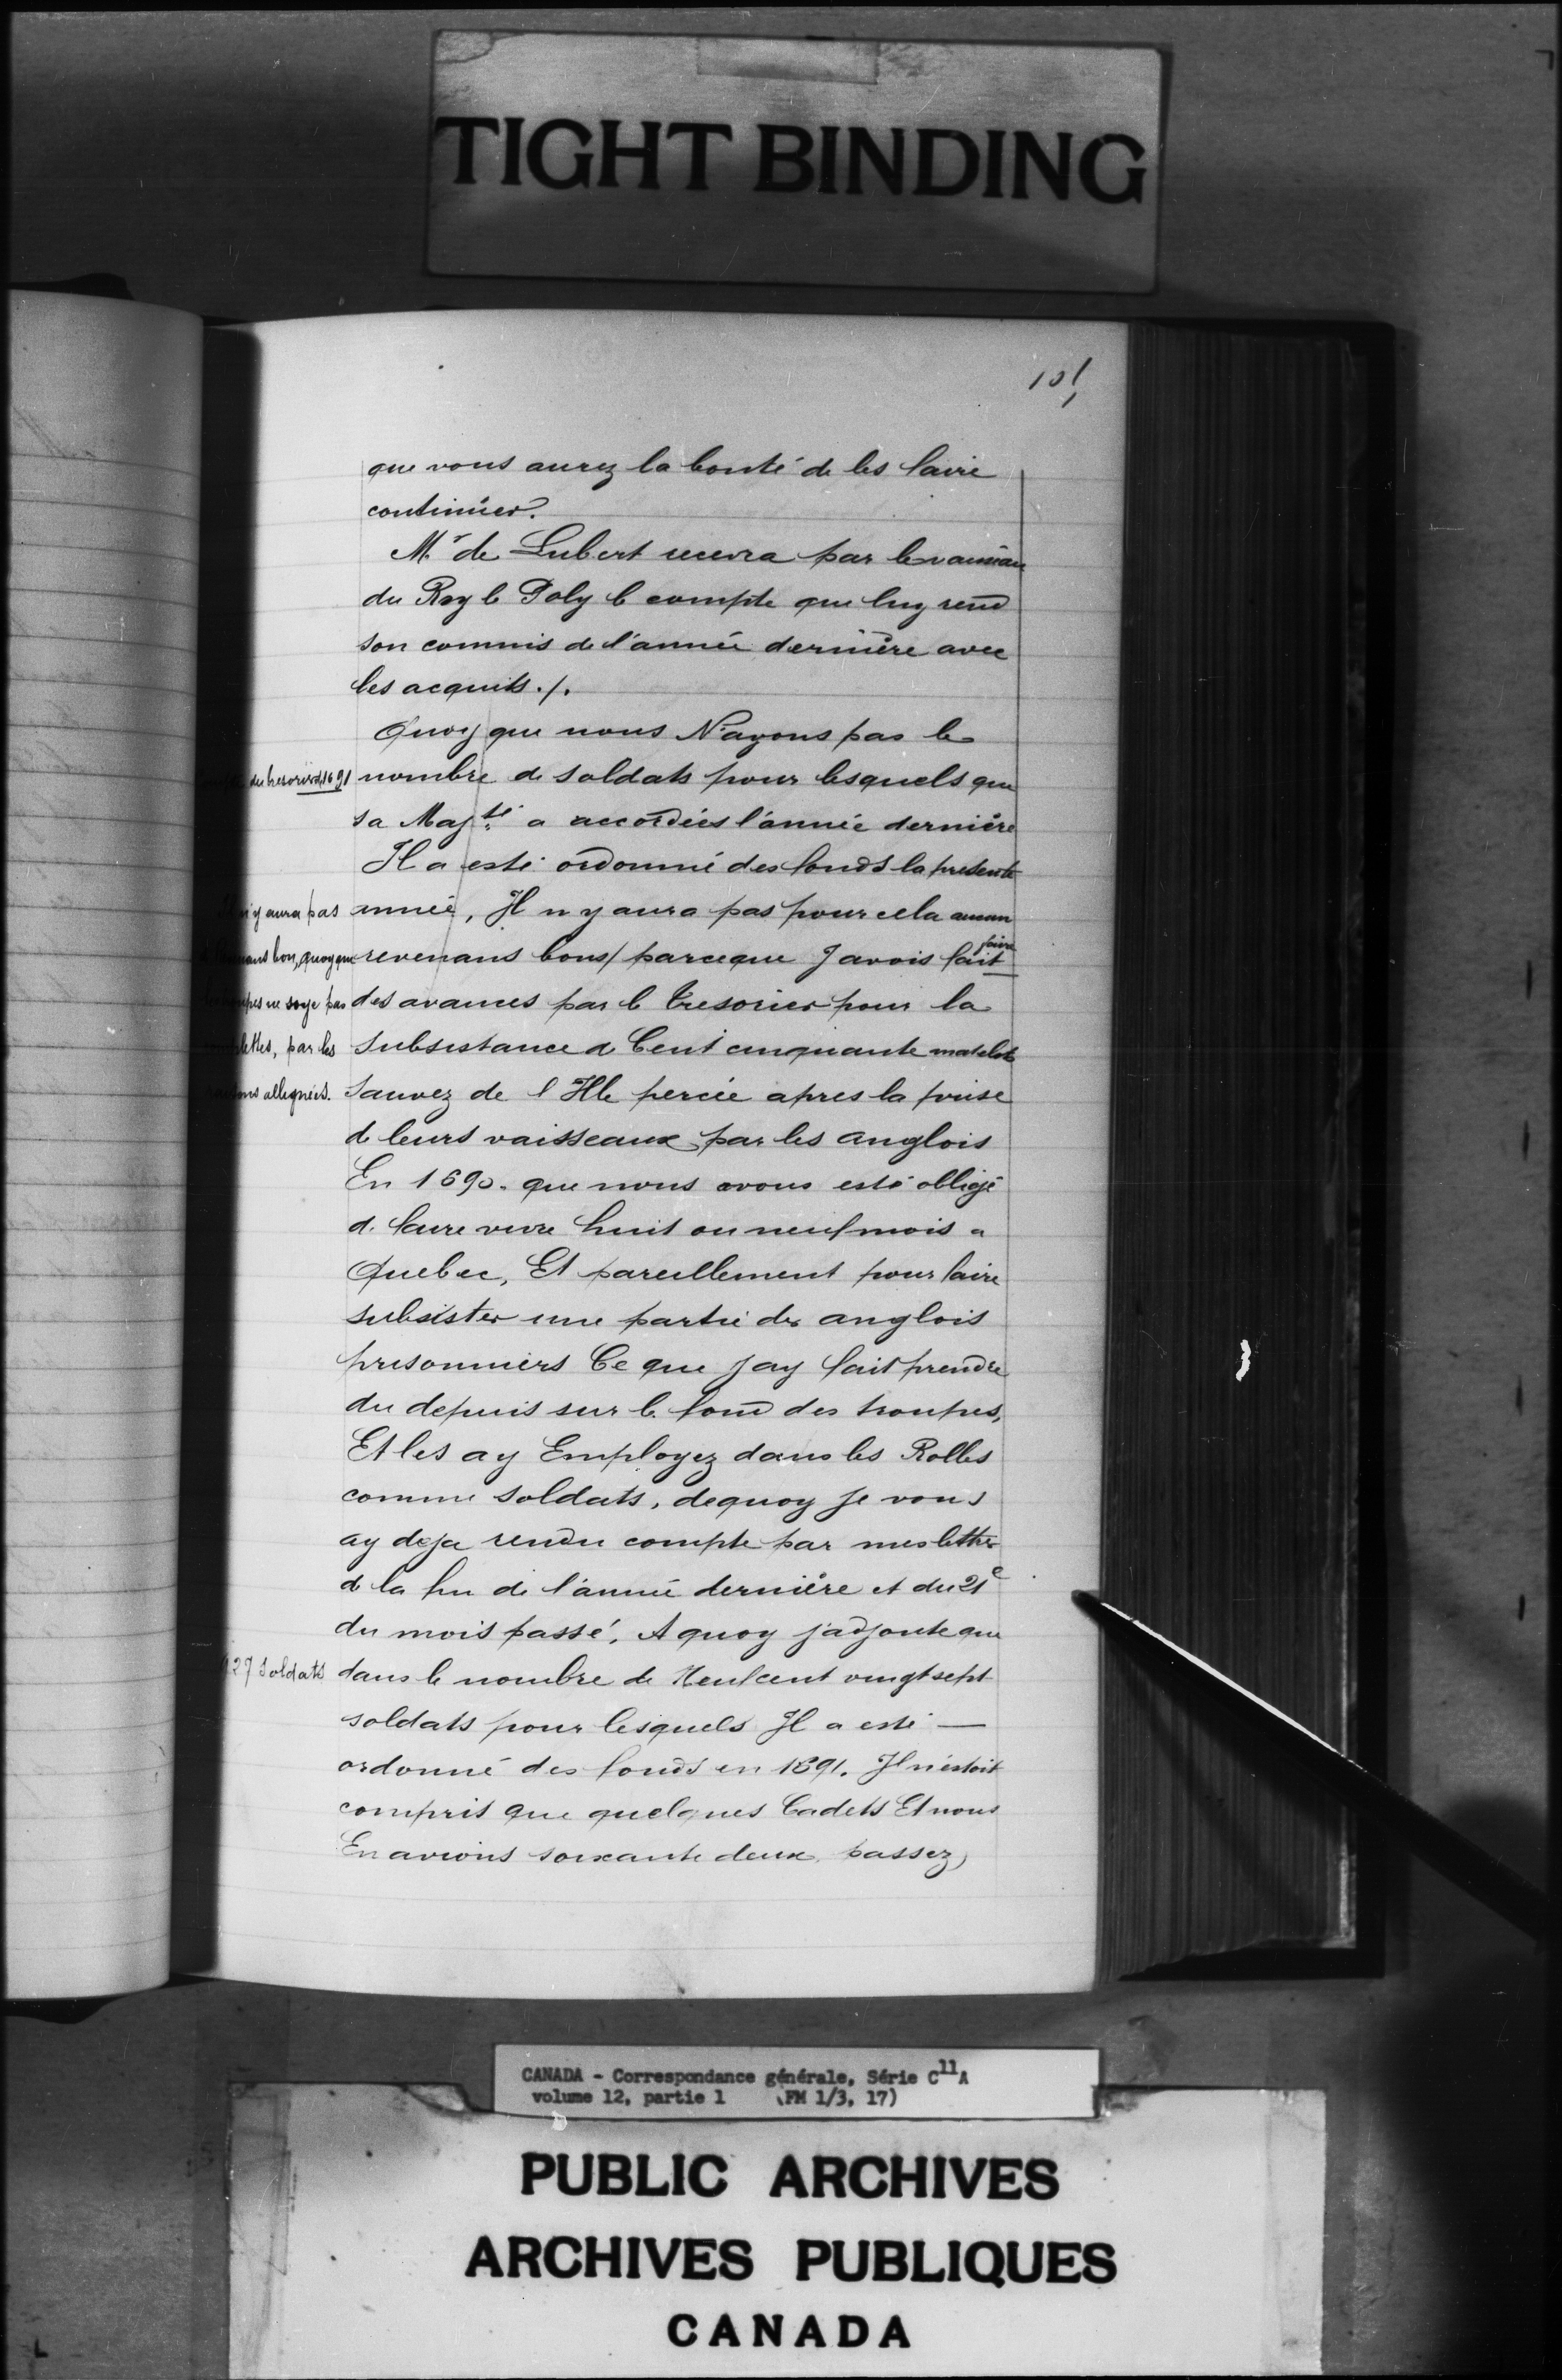 TIGHT BINDING
101
que vous aurez la bonté de les faire
continuer.
Mr de Lubert recevra par le vaisseau
du Roy le Poly le compte que luy rend
son commis de l'année dernière avec
les acquits ./.
Quoy que nous N'ayons pas le
du tresorier de 1691
nombre de soldats pour lesquels que
sa Majté a accordées l'année dernière
Il a esté ordonné des fonds la presente
n'y aura pas
année, Il n y aura pas pour cela aucun
bon, quoyque
revenans bons/ parceque J avois fait faire
ne soye pas
des avances par le Tresorier pour la
par les
subsistance de Cent cinquante matelots
alleguées.
Sauvez de l Isle percée apres la prise
de leurs vaisseaux par les anglois
En 1690. que nous avons esté obligé
de faire vivre huit ou neuf mois a
Quebec, Et pareillement pour faire
subsister une partie des anglois
prisonniers Ce que jay fait prendre
du depuis sur le fond des troupes,
Et les ay Employez dans les Rolles
comme soldats, dequoy je vous
ay deja rendu compte par mes lettres
de la fin de l'année dernière et du 21e
du mois passé, A quoy j'adjoute que
927 soldats
dans le nombre de Neufcent vingt sept
soldats pour lesquels Il a esté —
ordonné des fonds en 1691. Il n'estoit
compris que quelques Cadets Et nous
En avions soixante deux passez,
CANADA - Correspondance générale, Série C11A
volume 12, partie 1 (FM 1/3, 17)
PUBLIC ARCHIVES
ARCHIVES PUBLIQUES
CANADA